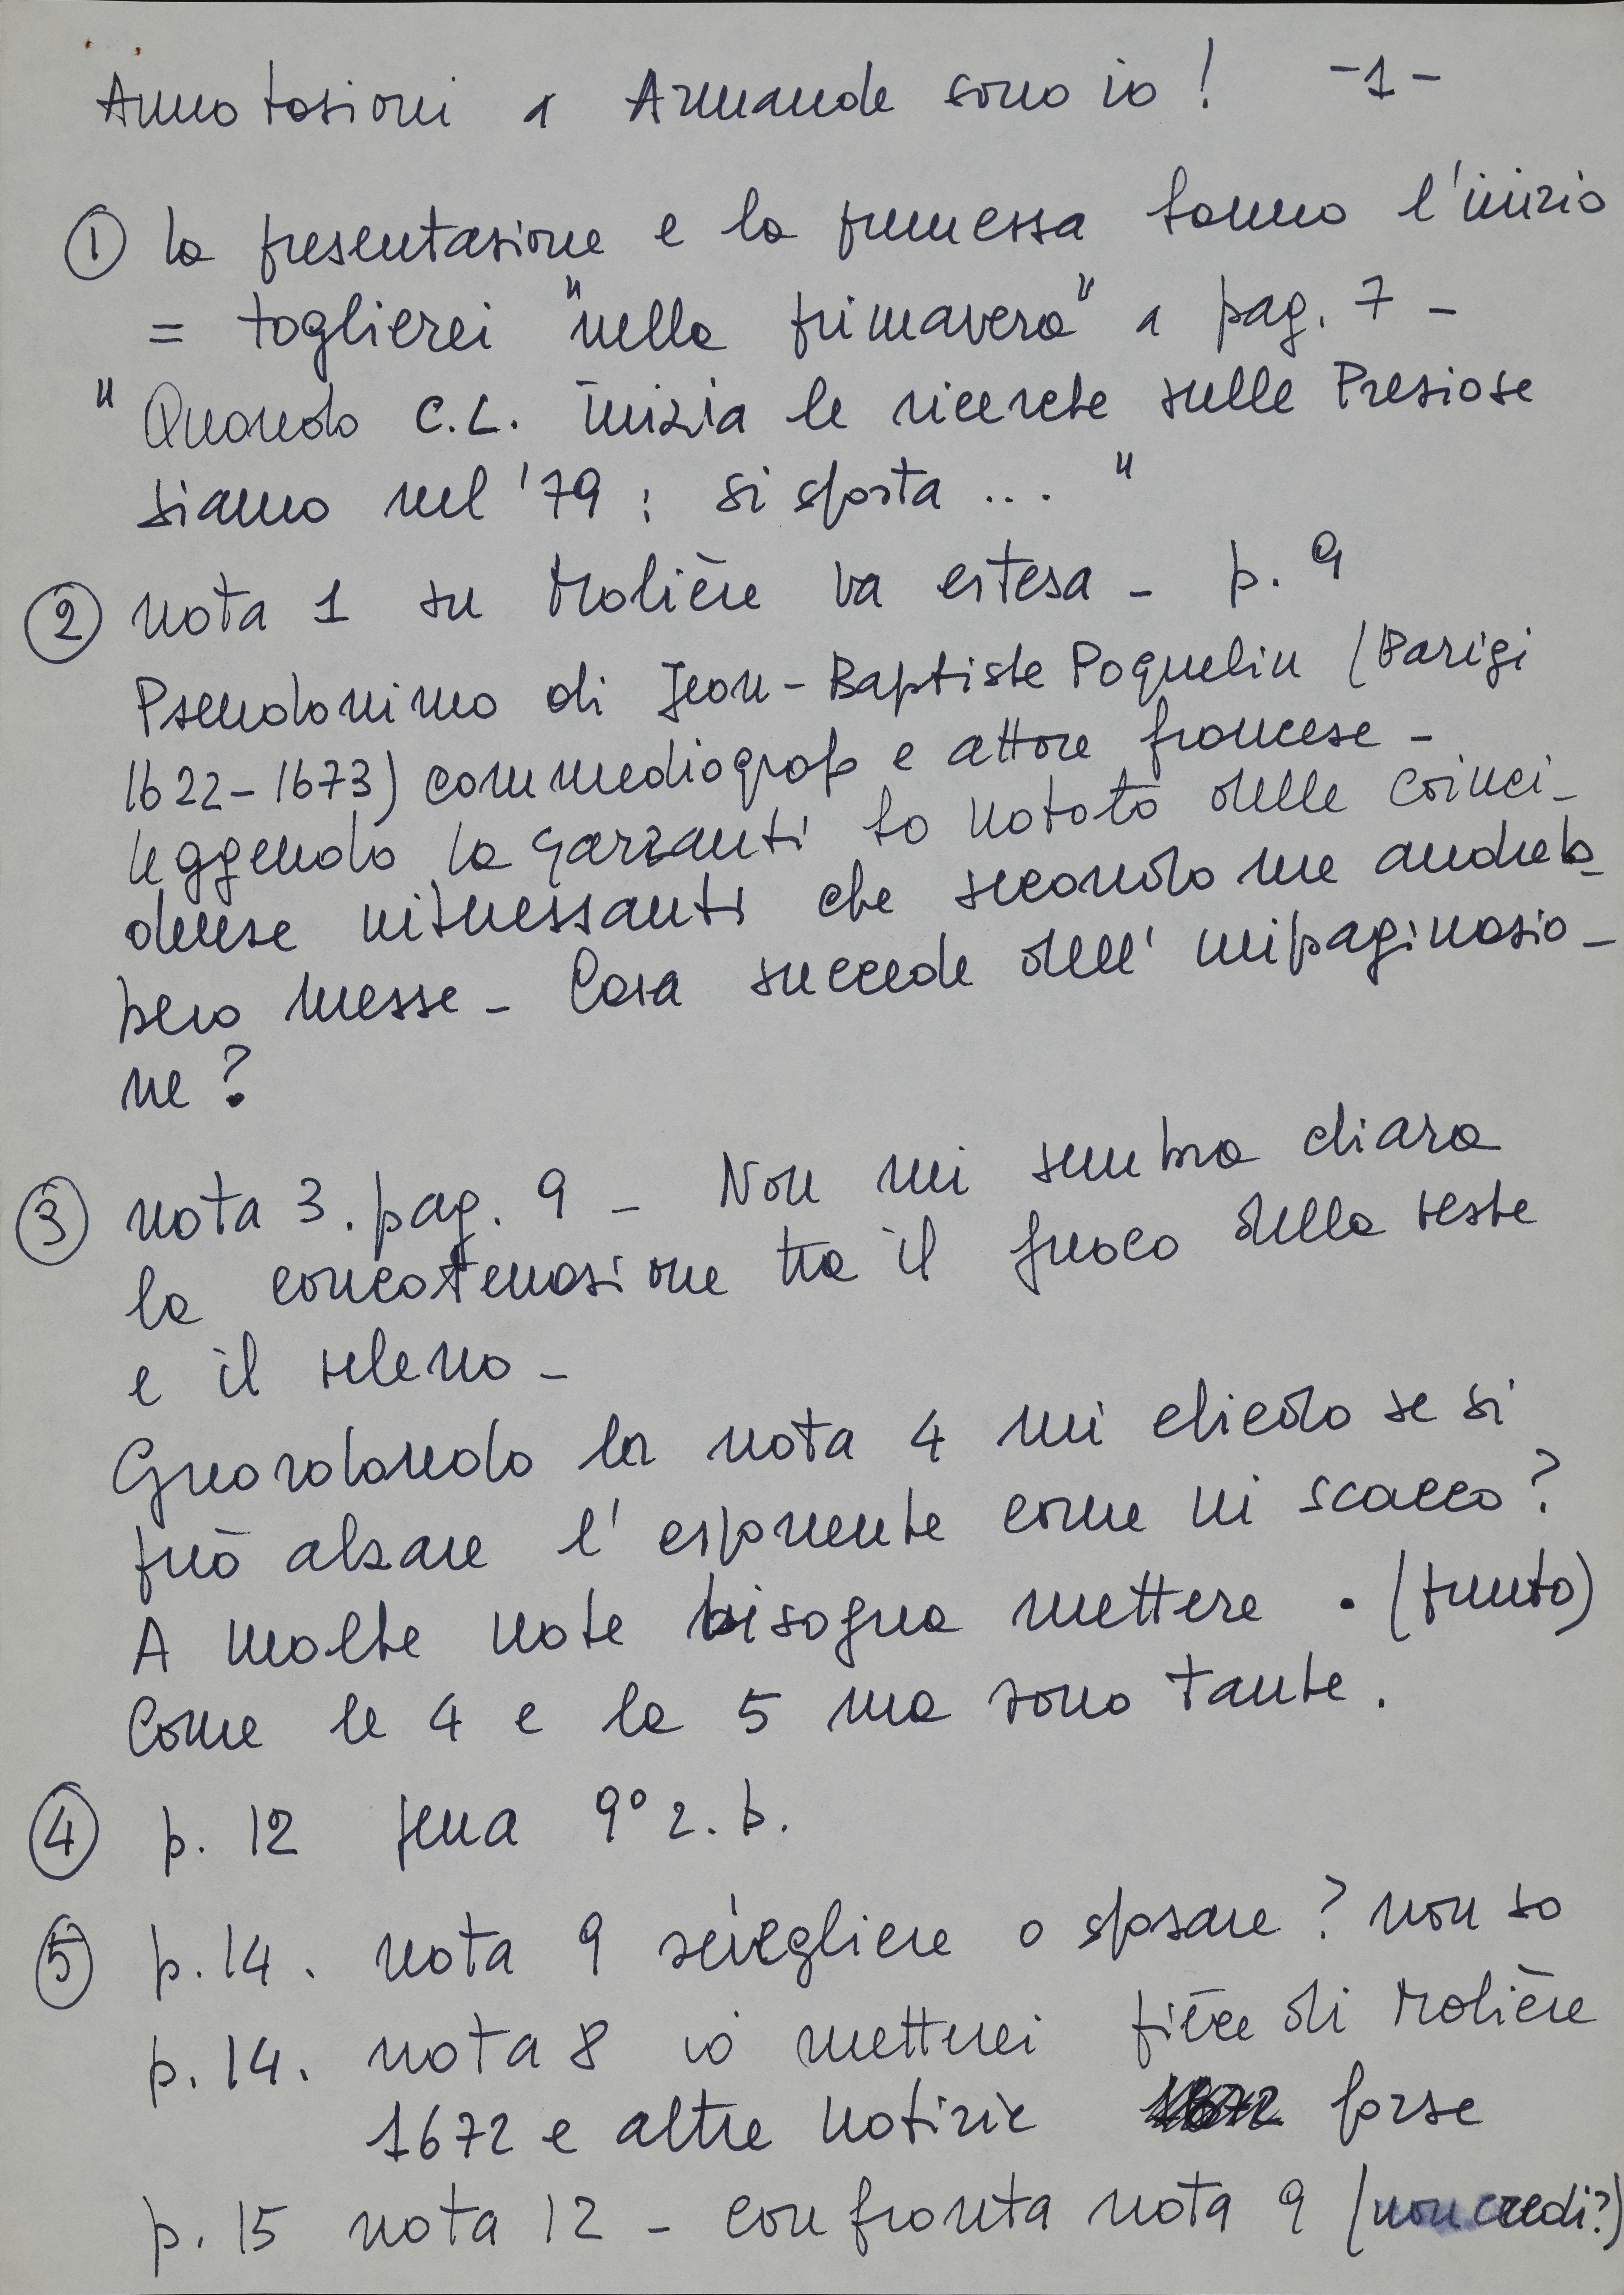 Annotazioni a Armande sono io! -1-
① la presentazione e la premessa sanno l'inizio
= toglierei "nella primavera" a pag. 7 -
"Quando C.L. inizia le ricerche sulle Preziose
siamo nel '79: si sposta ... "
② nota 1 su Molière va estesa - p. 9
Pseudonimo di Jean-Baptiste Poquelin (Parigi
1622-1673) commediografo e attore francese -
leggendo la Garzanti ho notato delle coinci-
denze interessanti che secondo me andreb-
bero messe - Cosa succede dell'impaginazio-
ne?
③ nota 3. pag. 9 - Non mi sembra chiara
la concatenazione tra il fuoco della veste
e il veleno -
Guardando la nota 4 mi chiedo se si
può alzare l'esponente come in scacco?
A molte note bisogna mettere . (punto)
Come le 4 e la 5 ma sono tante.
④ p. 12 9° r. b.
⑤ p. 14. nota 9 sciogliere o sposare? non so
p. 14. nota 8 io metterei pièce di Molière
1672 e altre notizie forse
p. 15 nota 12 - confronta nota 9 (non credi?)